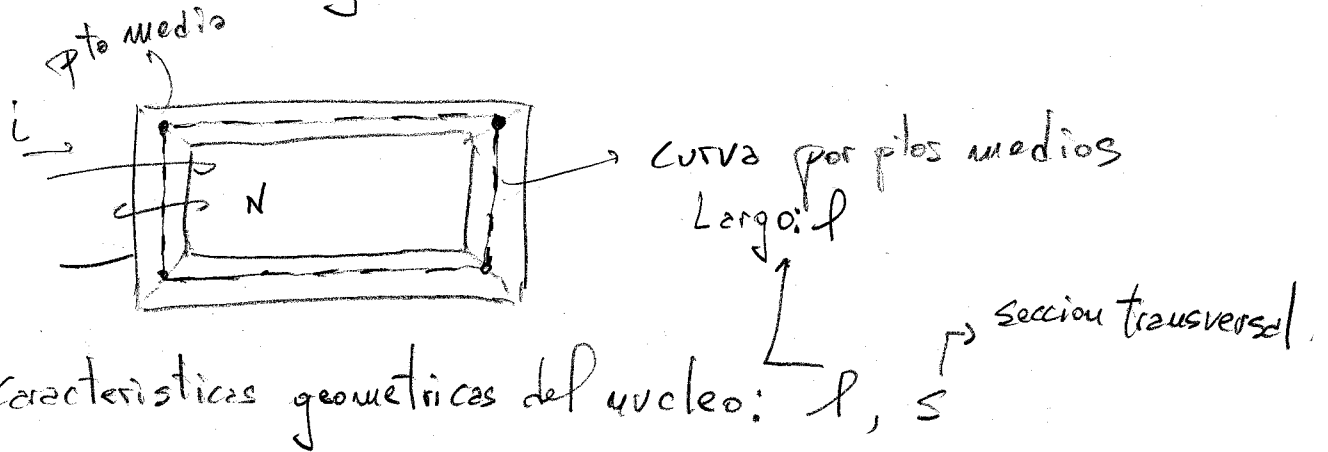 pto medio
i
N
curva por ptos medios
Largo: l
seccion transversal.
Caracteristicas geometricas del nucleo: l, s